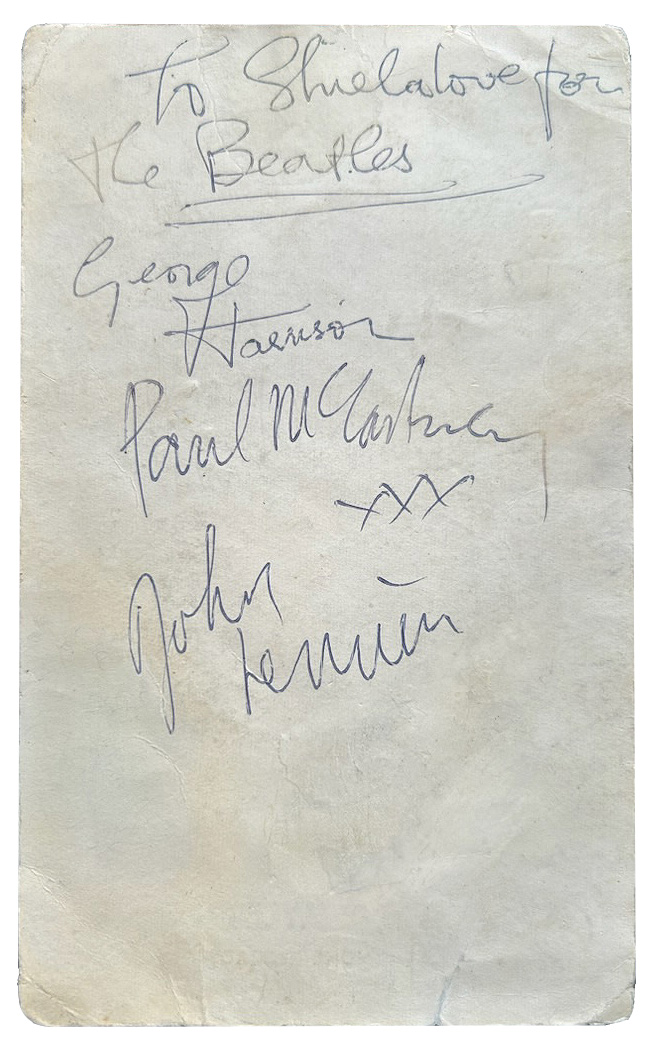 To Shiela love for
the Beatles
George
Harrison
Paul McCartney
xxx
John
Lennon